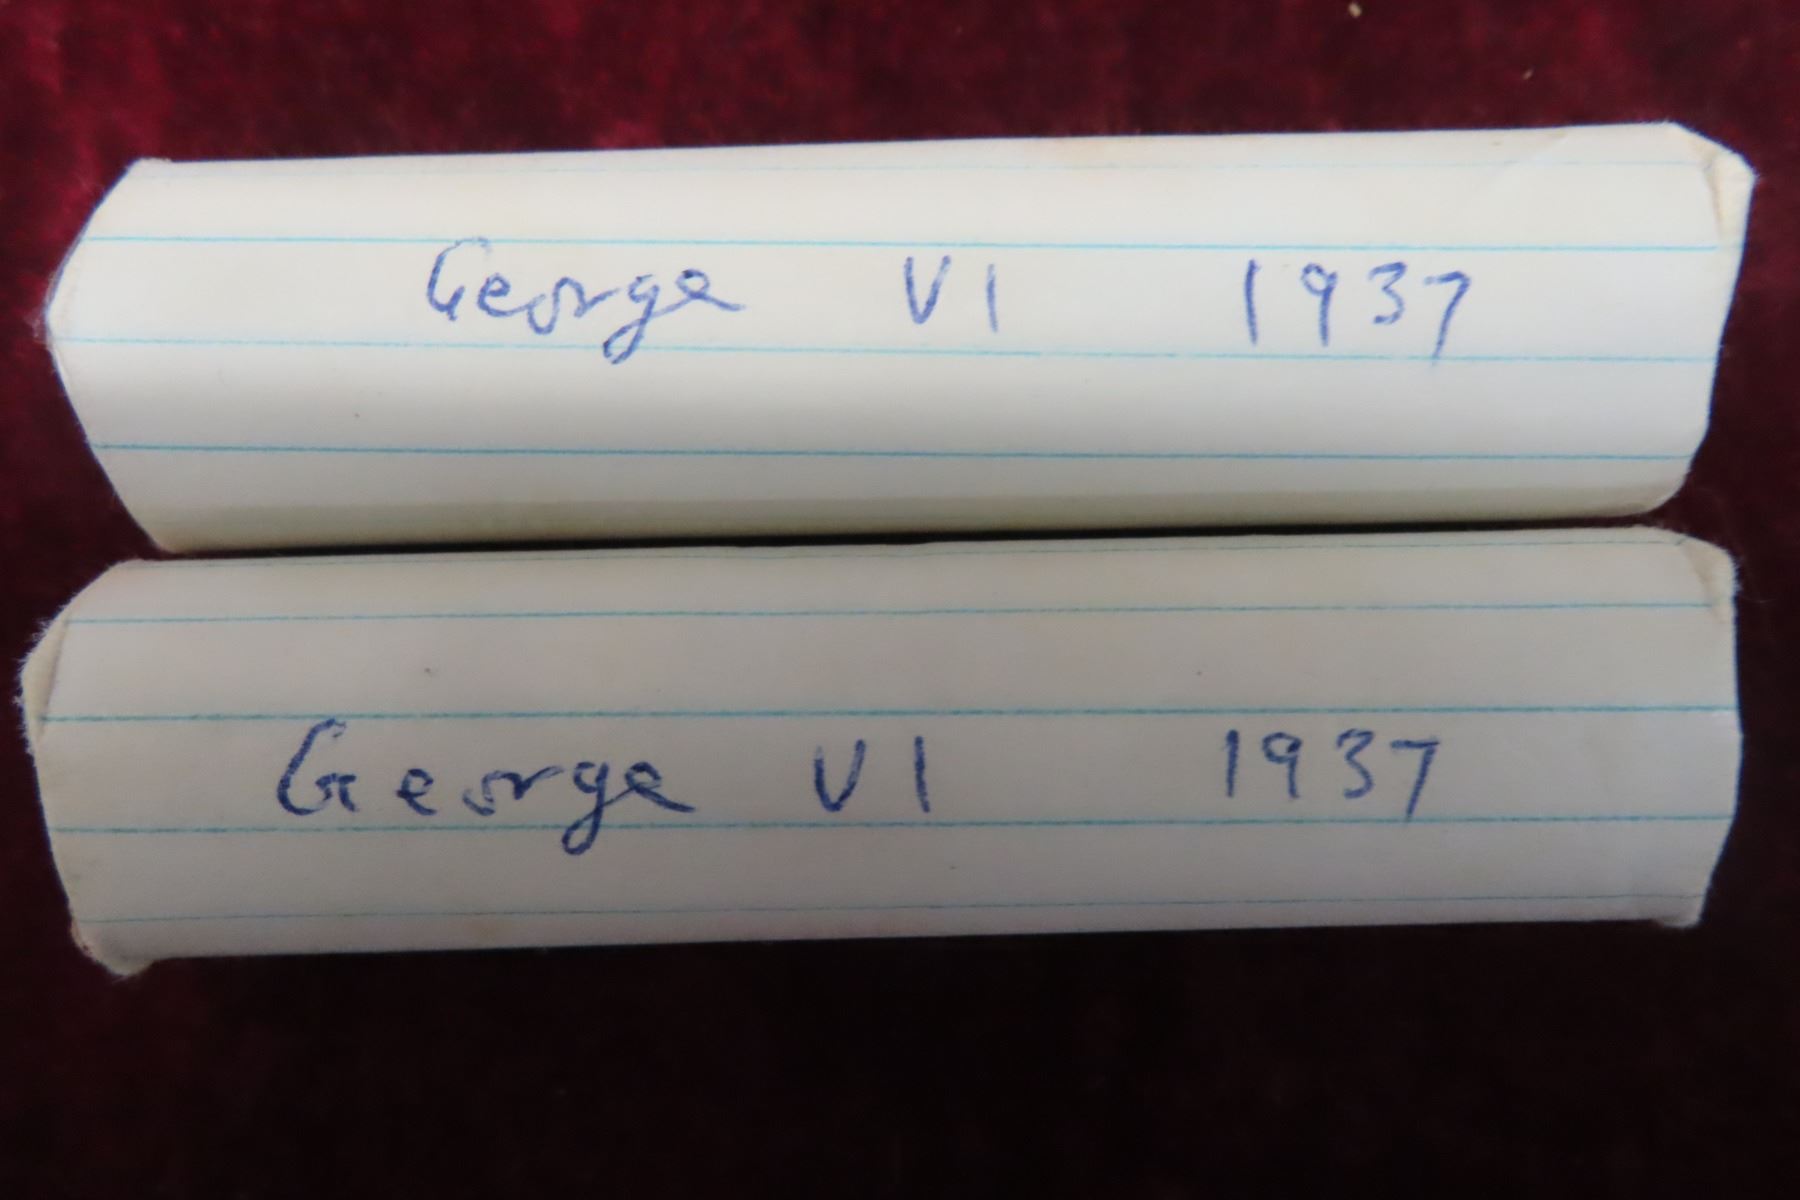 George VI 1937
George VI 1937